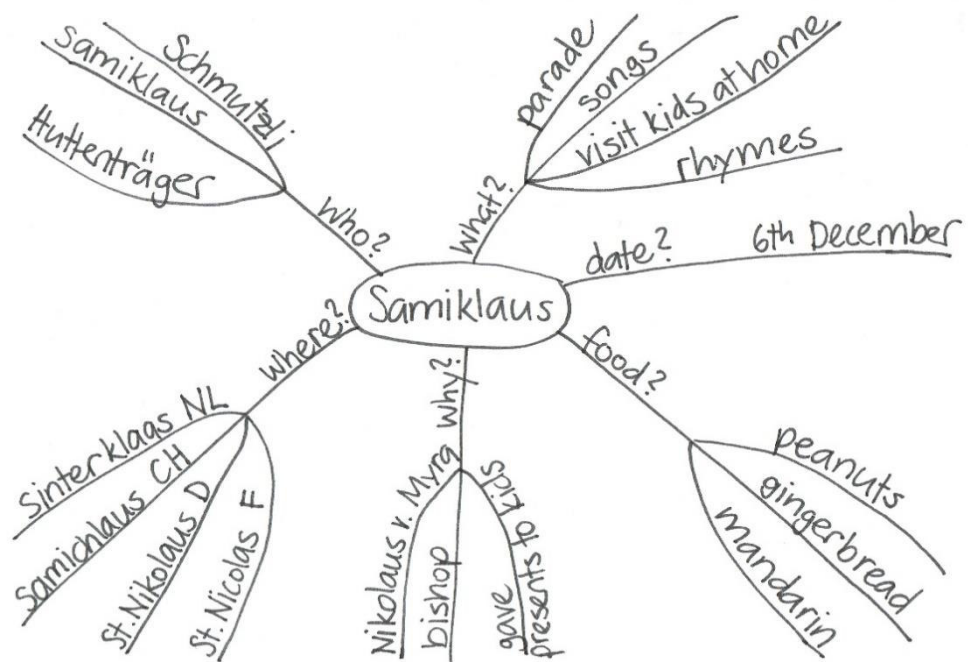 Samiklaus
Who?
Schmutzli
Samiklaus
Huttenträger
What?
parade
songs
visit kids at home
rhymes
date?
6th December
food?
peanuts
gingerbread
mandarin
Why?
Nikolaus v. Myra
bishop
gave
presents to kids
Where?
Sinterklaas NL
Samichlaus CH
St. Nikolaus D
St. Nicolas F